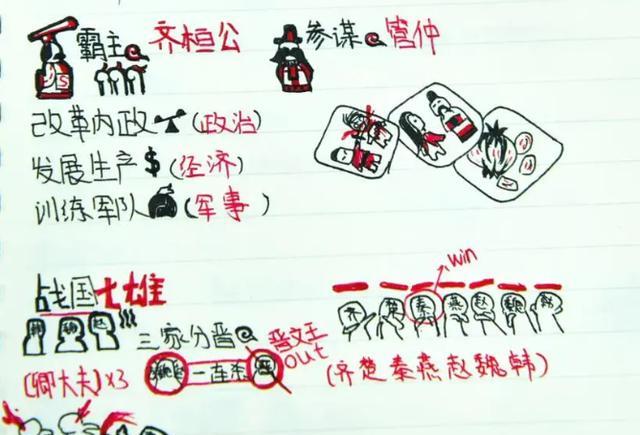 霸主@齐桓公 参谋@管仲
改革内政(政治)
发展生产$(经济)
训练军队(军事)
战国七雄
win
齐楚秦燕赵魏韩
三家分晋@晋文王
out
(卿大夫)×3
一连杀
(齐楚秦燕赵魏韩)